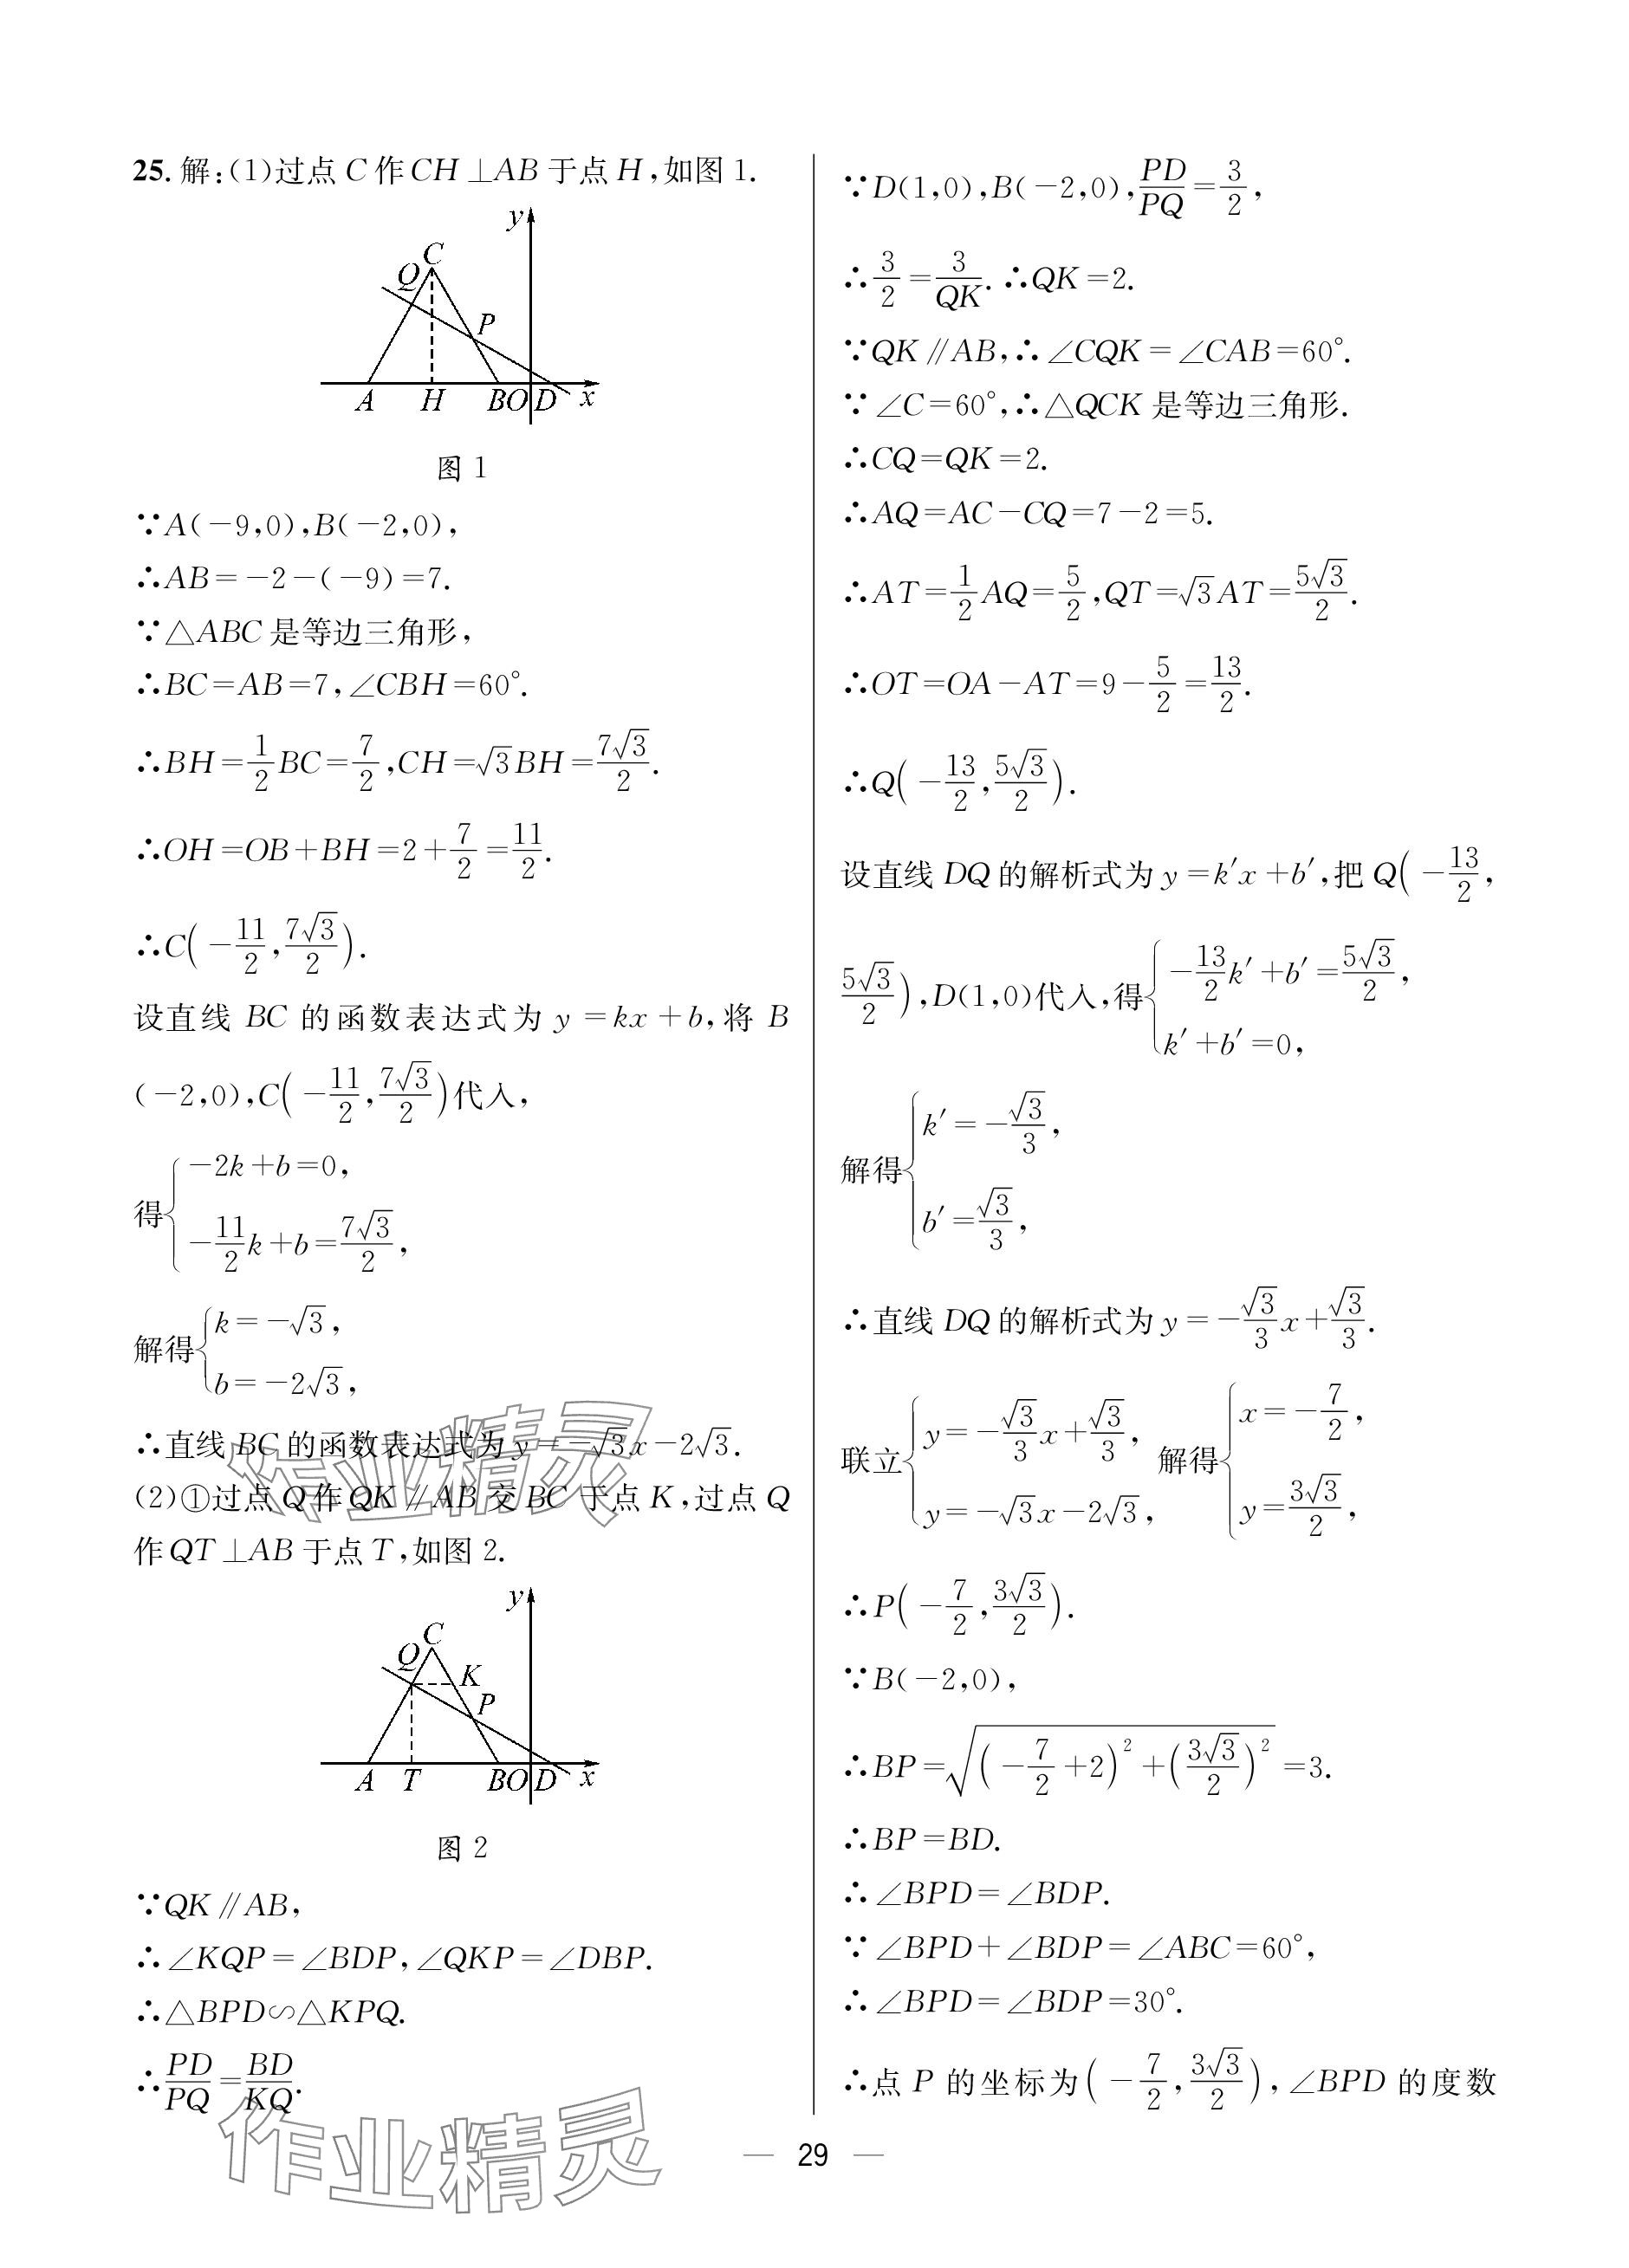 25. 解:(1)过点 C 作 CH⊥AB 于点 H,如图 1.
y
C
Q
P
A H B O D x
图 1
∵A(-9,0),B(-2,0),
∴AB=-2-(-9)=7.
∵△ABC 是等边三角形,
∴BC=AB=7,∠CBH=60°.
∴BH=1/2 BC=7/2,CH=√3BH=7√3/2.
∴OH=OB+BH=2+7/2=11/2.
∴C(-11/2,7√3/2).
设直线 BC 的函数表达式为 y=kx+b,将 B
(-2,0),C(-11/2,7√3/2)代入,
得{-2k+b=0,
-11/2 k+b=7√3/2,
解得{k=-√3,
b=-2√3,
∴直线 BC 的函数表达式为 y=-√3x-2√3.
(2)①过点 Q 作 QK∥AB 交 BC 于点 K,过点 Q
作 QT⊥AB 于点 T,如图 2.
y
C
Q
K
P
A T B O D x
图 2
∵QK∥AB,
∴∠KQP=∠BDP,∠QKP=∠DBP.
∴△BPD∽△KPQ.
∴PD/PQ=BD/KQ.
∵D(1,0),B(-2,0),PD/PQ=3/2,
∴3/2=3/QK.∴QK=2.
∵QK∥AB,∴∠CQK=∠CAB=60°.
∵∠C=60°,∴△QCK 是等边三角形.
∴CQ=QK=2.
∴AQ=AC-CQ=7-2=5.
∴AT=1/2 AQ=5/2,QT=√3AT=5√3/2.
∴OT=OA-AT=9-5/2=13/2.
∴Q(-13/2,5√3/2).
设直线 DQ 的解析式为 y=k′x+b′,把 Q(-13/2,
5√3/2),D(1,0)代入,得{-13/2 k′+b′=5√3/2,
k′+b′=0,
解得{k′=-√3/3,
b′=√3/3,
∴直线 DQ 的解析式为 y=-√3/3 x+√3/3.
联立{y=-√3/3 x+√3/3, y=-√3x-2√3, 解得{x=-7/2, y=3√3/2,
∴P(-7/2,3√3/2).
∵B(-2,0),
∴BP=√((-7/2+2)²+(3√3/2)²)=3.
∴BP=BD.
∴∠BPD=∠BDP.
∵∠BPD+∠BDP=∠ABC=60°,
∴∠BPD=∠BDP=30°.
∴点 P 的坐标为(-7/2,3√3/2),∠BPD 的度数
— 29 —
作业精灵
作业精灵